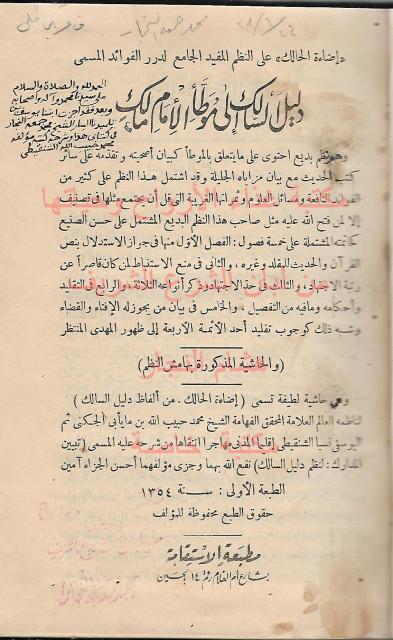 محمد جمعة النجار
«إضاءة الحالك» على النظم المفيد الجامع لدرر الفوائد المسمى
دليل السالك إلى موطأ الإمام مالك
الحمد لله والصلاة والسلام
محمد حبيب الله الشنقيطي
وهو نظم بديع احتوى على ما يتعلق بالموطأ كبيان أصحيته و تقدمه على سائر
كتب الحديث مع بيان مزاياه الجليلة وقد اشتمل هذا النظم على كثير من
الفوائد النافعة ومسائل العلوم وثمراتها الغريبة التي قل أن يجتمع مثلها في تصنيف
إلا لمن فتح الله عليه مثل صاحب هذا النظم البديع المشتمل على حسن الصنيع
كخاتمته المشتملة على خمسة فصول: الفصل الأول منها في جواز الاستدلال بنص
القرآن والحديث للمقلد وغيره، والثاني في منع الاستنباط لمن كان قاصراً عن
رتبة الاجتهاد، والثالث في حد الاجتهاد وذكر أنواعه الثلاثة، والرابع في التقليد
وأحكامه وما فيه من التفصيل، والخامس في بيان من يجوز له الإفتاء والقضاء
وشبه ذلك كوجوب تقليد أحد الأئمة الأربعة إلى ظهور المهدى المنتظر
(والحاشية المذكورة بهامش النظم)
وهي حاشية لطيفة تسمى (إضاءة الحالك. من ألفاظ دليل السالك)
لناظمه العالم العلامة المحقق الفهامة الشيخ محمد حبيب الله بن مايأبى الجكنى ثم
اليوسفي نسبا الشنقيطي إقليما المدنى مهاجرا انتقاها من شرحه عليه المسمى (تبيين
المدارك: لنظم دليل السالك) نفع الله بهما وجزى مؤلفهما أحسن الجزاء آمين
الطبعة الأولى: سنة ١٣٥٤
حقوق الطبع محفوظة للمؤلف
مطبعة الاستقامة
بشارع أم الغلام رقم ١٤ بالحسين